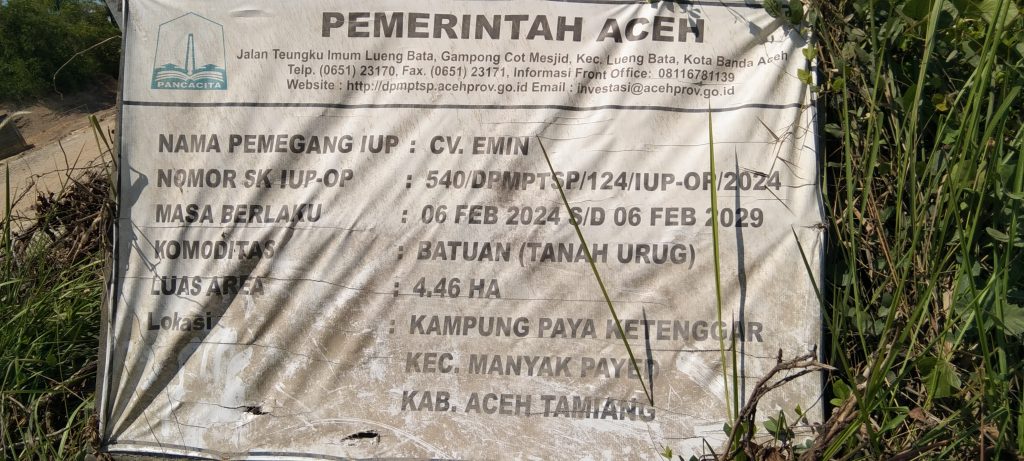 PEMERINTAH ACEH
Jalan Teungku Imum Lueng Bata, Gampong Cot Mesjid, Kec. Lueng Bata, Kota Banda Aceh
Telp. (0651) 23170, Fax. (0651) 23171, Informasi Front Office: 08116781139
Website : http://dpmptsp.acehprov.go.id Email : investasi@acehprov.go.id
PANCACITA
NAMA PEMEGANG IUP : CV. EMIN
NOMOR SK IUP-OP : 540/DPMPTSP/124/IUP-OP/2024
MASA BERLAKU : 06 FEB 2024 S/D 06 FEB 2029
KOMODITAS : BATUAN (TANAH URUG)
LUAS AREA : 4.46 HA
Lokasi : KAMPUNG PAYA KETENGGAR
KEC. MANYAK PAYED
KAB. ACEH TAMIANG